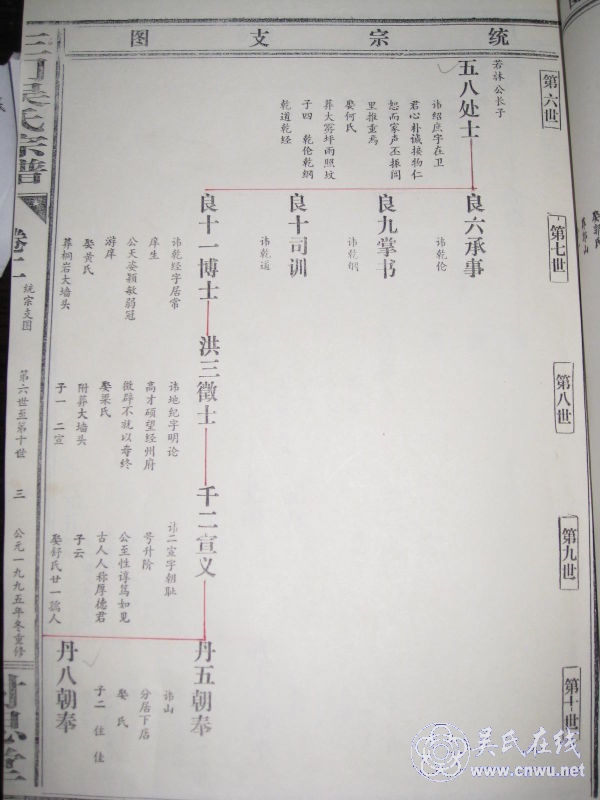 统宗支图
第六世
若林公长子
五八处士
讳绍庶字在卫
君心朴诚接物仁
恕而家声丕振闾
里推重焉
娶何氏
葬大雾坪雨照坟
子四 乾伦乾纲
乾道乾经
第七世
良六承事
讳乾伦
良九掌书
讳乾纲
良十司训
讳乾道
良十一博士
讳乾经字居常
庠生
公天姿颖敏弱冠
游庠
娶黄氏
葬桐岩大墙头
第八世
洪三徵士
讳地纪字明论
高才硕望经州府
徵辟不就以寿终
娶梁氏
附葬大墙头
子一 二宣
第九世
千二宣义
讳二宣字朝耻
号升阶
公至性谆笃如见
古人人称厚德君
子云
娶舒氏廿一孺人
第十世
丹五朝奉
讳山
分居下店
娶 氏
子二 住 佳
丹八朝奉
吴氏宗谱
卷二
统宗支图
第六世至第十世
三
公元一九九五年冬重修
吴氏在线
www.cnwu.net